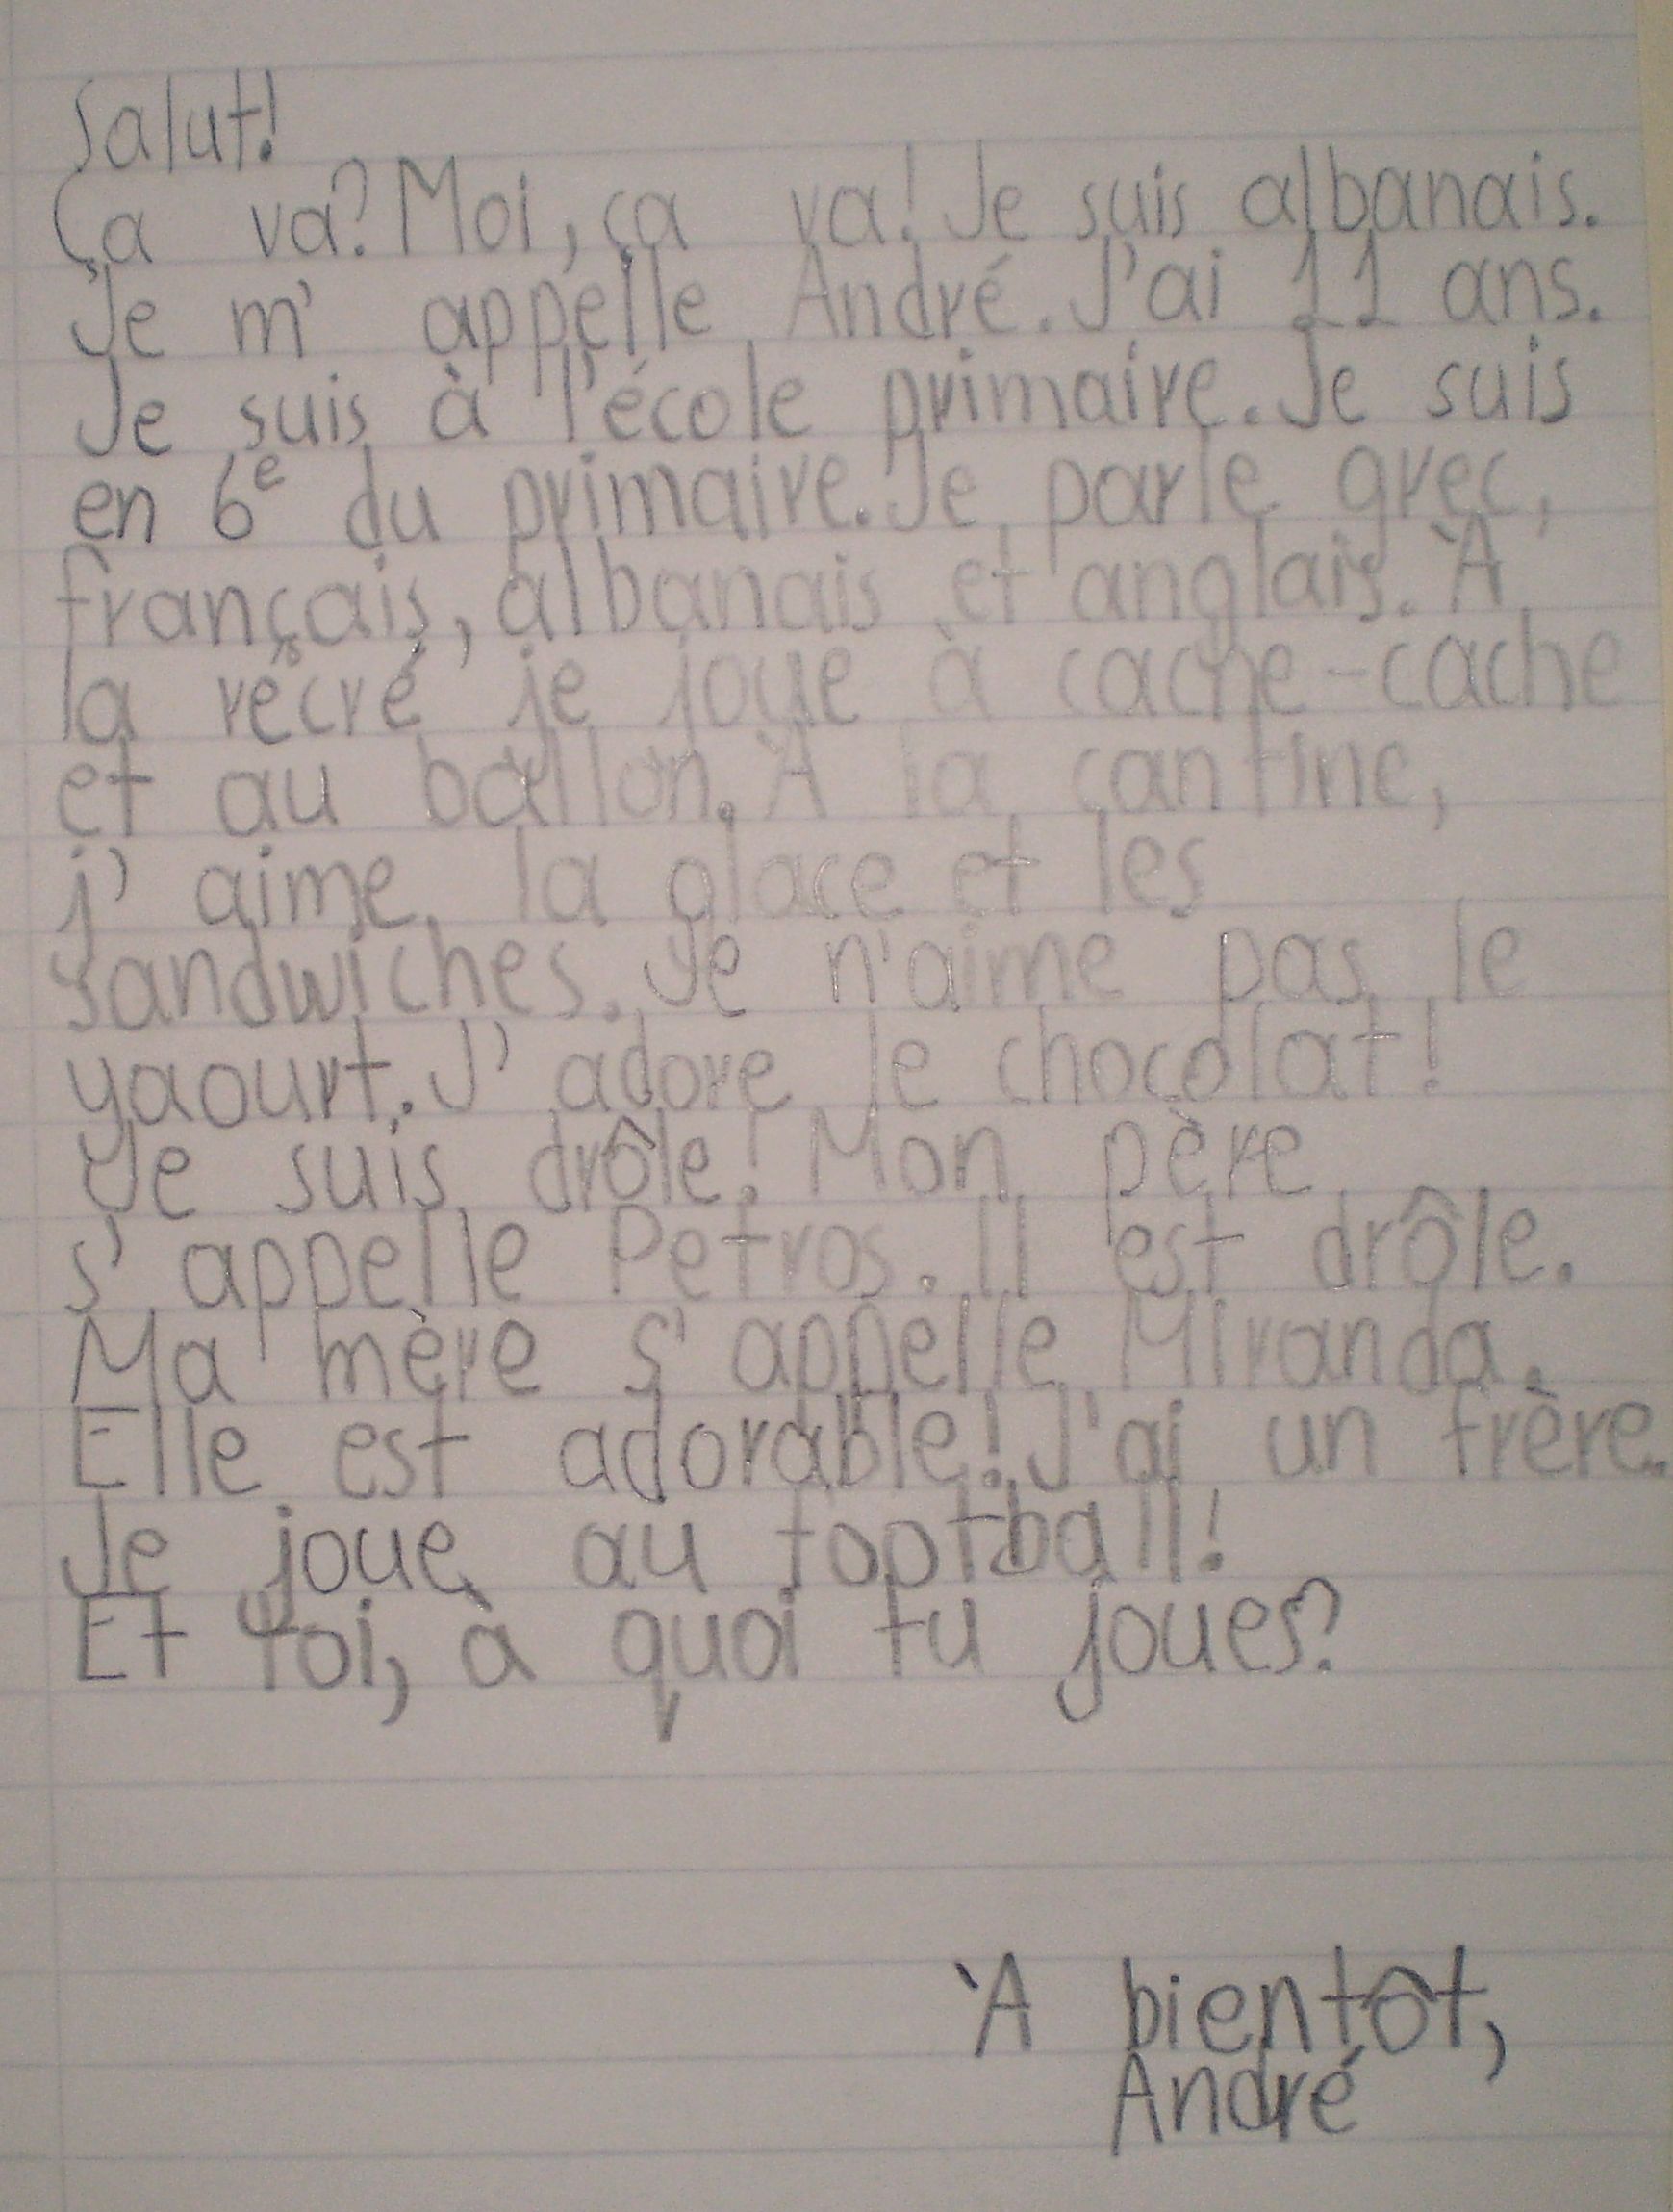 Salut!
Ça va? Moi, ça va! Je suis albanais.
Je m' appelle André. J'ai 11 ans.
Je suis à l'école primaire. Je suis
en 6e du primaire. Je parle grec,
français, albanais et anglais. À
la récré je joue à cache-cache
et au ballon. À la cantine,
j' aime la glace et les
sandwiches. Je n'aime pas le
yaourt. J' adore le chocolat!
Je suis drôle! Mon père
s' appelle Petros. Il est drôle.
Ma mère s' appelle Miranda.
Elle est adorable! J'ai un frère.
Je joue au football!
Et toi, à quoi tu joues?
À bientôt,
André